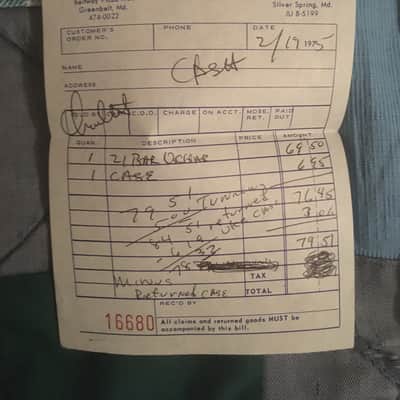 Beltway Plaza
Greenbelt, Md.
474-0022
Silver Spring, Md.
JU 8-5199
CUSTOMER'S ORDER NO.
PHONE
DATE
2/19 1975
NAME
CASH
ADDRESS
SOLD BY C.O.D. CHARGE ON ACCT. MDSE. RET. PAID OUT
QUAN. DESCRIPTION PRICE AMOUNT
1 21 BAR 69.50
1 CASE 6.95
79 51 76.45
5 00 TUNING 3.06
84 51 returned
- 6 19 UKE CASE 79.51
78 32
Minus TAX
Returned CASE TOTAL
REC'D BY
16680
All claims and returned goods MUST be
accompanied by this bill.